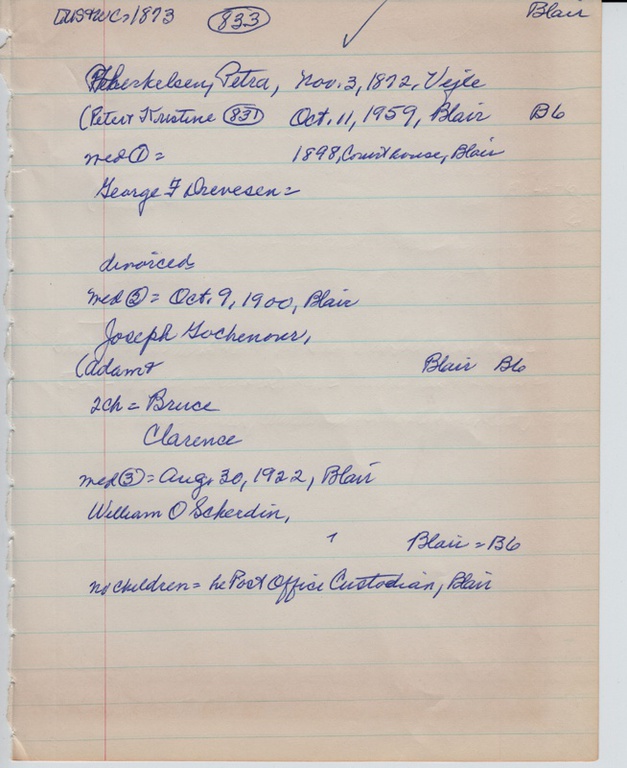 DUS+WC>1873 833 Blair
Therkelsen, Petra, Nov. 3, 1872, Vejle
(Peter + Kristine 831) Oct. 11, 1959, Blair B6
med ① = 1898, Courthouse, Blair
George F Drevesen =
divorced
med ② = Oct. 9, 1900, Blair
Joseph Gochenour,
(Adam + Blair B6
2ch = Bruce
Clarence
med ③ = Aug. 30, 1922, Blair
William O Scherdin,
Blair = B6
no children = he Post Office Custodian, Blair